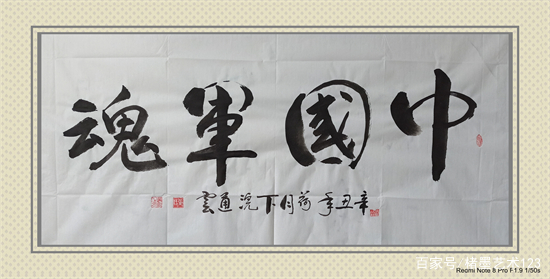 中國軍魂
辛丑年荷月下浣通雲
百家号/楮墨艺术123
Redmi Note 8 Pro F1.9 1/50s